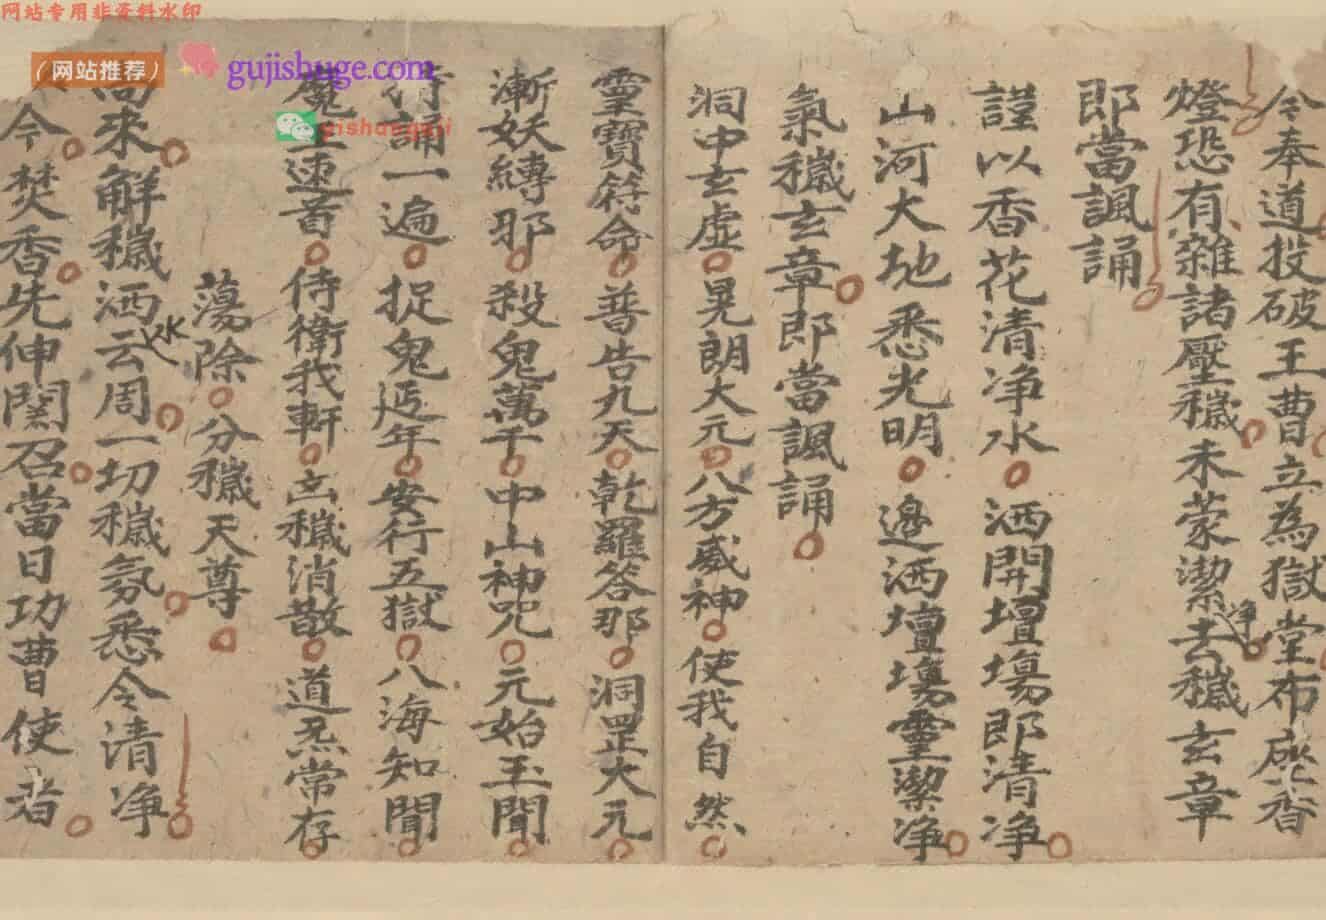 网站专用非资料水印
(网站推荐)
gujishuge.com
yishanguji
今奉道投破王曹立為獄堂布座香
燈恐有雜諸壓穢未蒙潔净去穢玄章
即當諷誦
謹以香花清净水洒開壇塲即清净
山河大地悉光明邉洒壇塲靈潔净
氣穢玄章即當諷誦
洞中玄虚晃朗大元八方威神使我自然
靈寶符命普告九天乾羅答那洞罡大元
斬妖縛邪殺鬼萬千中山神咒元始玉聞
誦一遍捉鬼延年安行五獄八海知聞
魔王速首侍衛我軒㐫穢消散道炁常存
蕩除分穢天尊
来解穢洒水云周一切穢氛悉令清净
今焚香先伸関召當日功曹使者